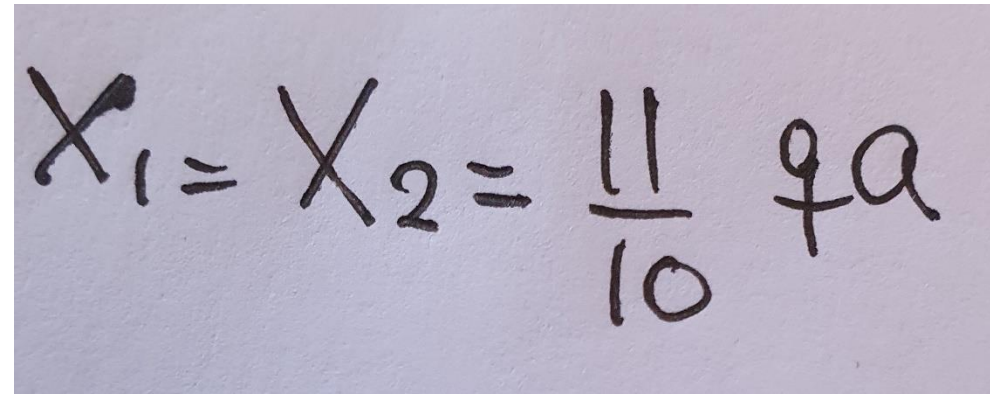 X₁ = X₂ = 11/10 qa